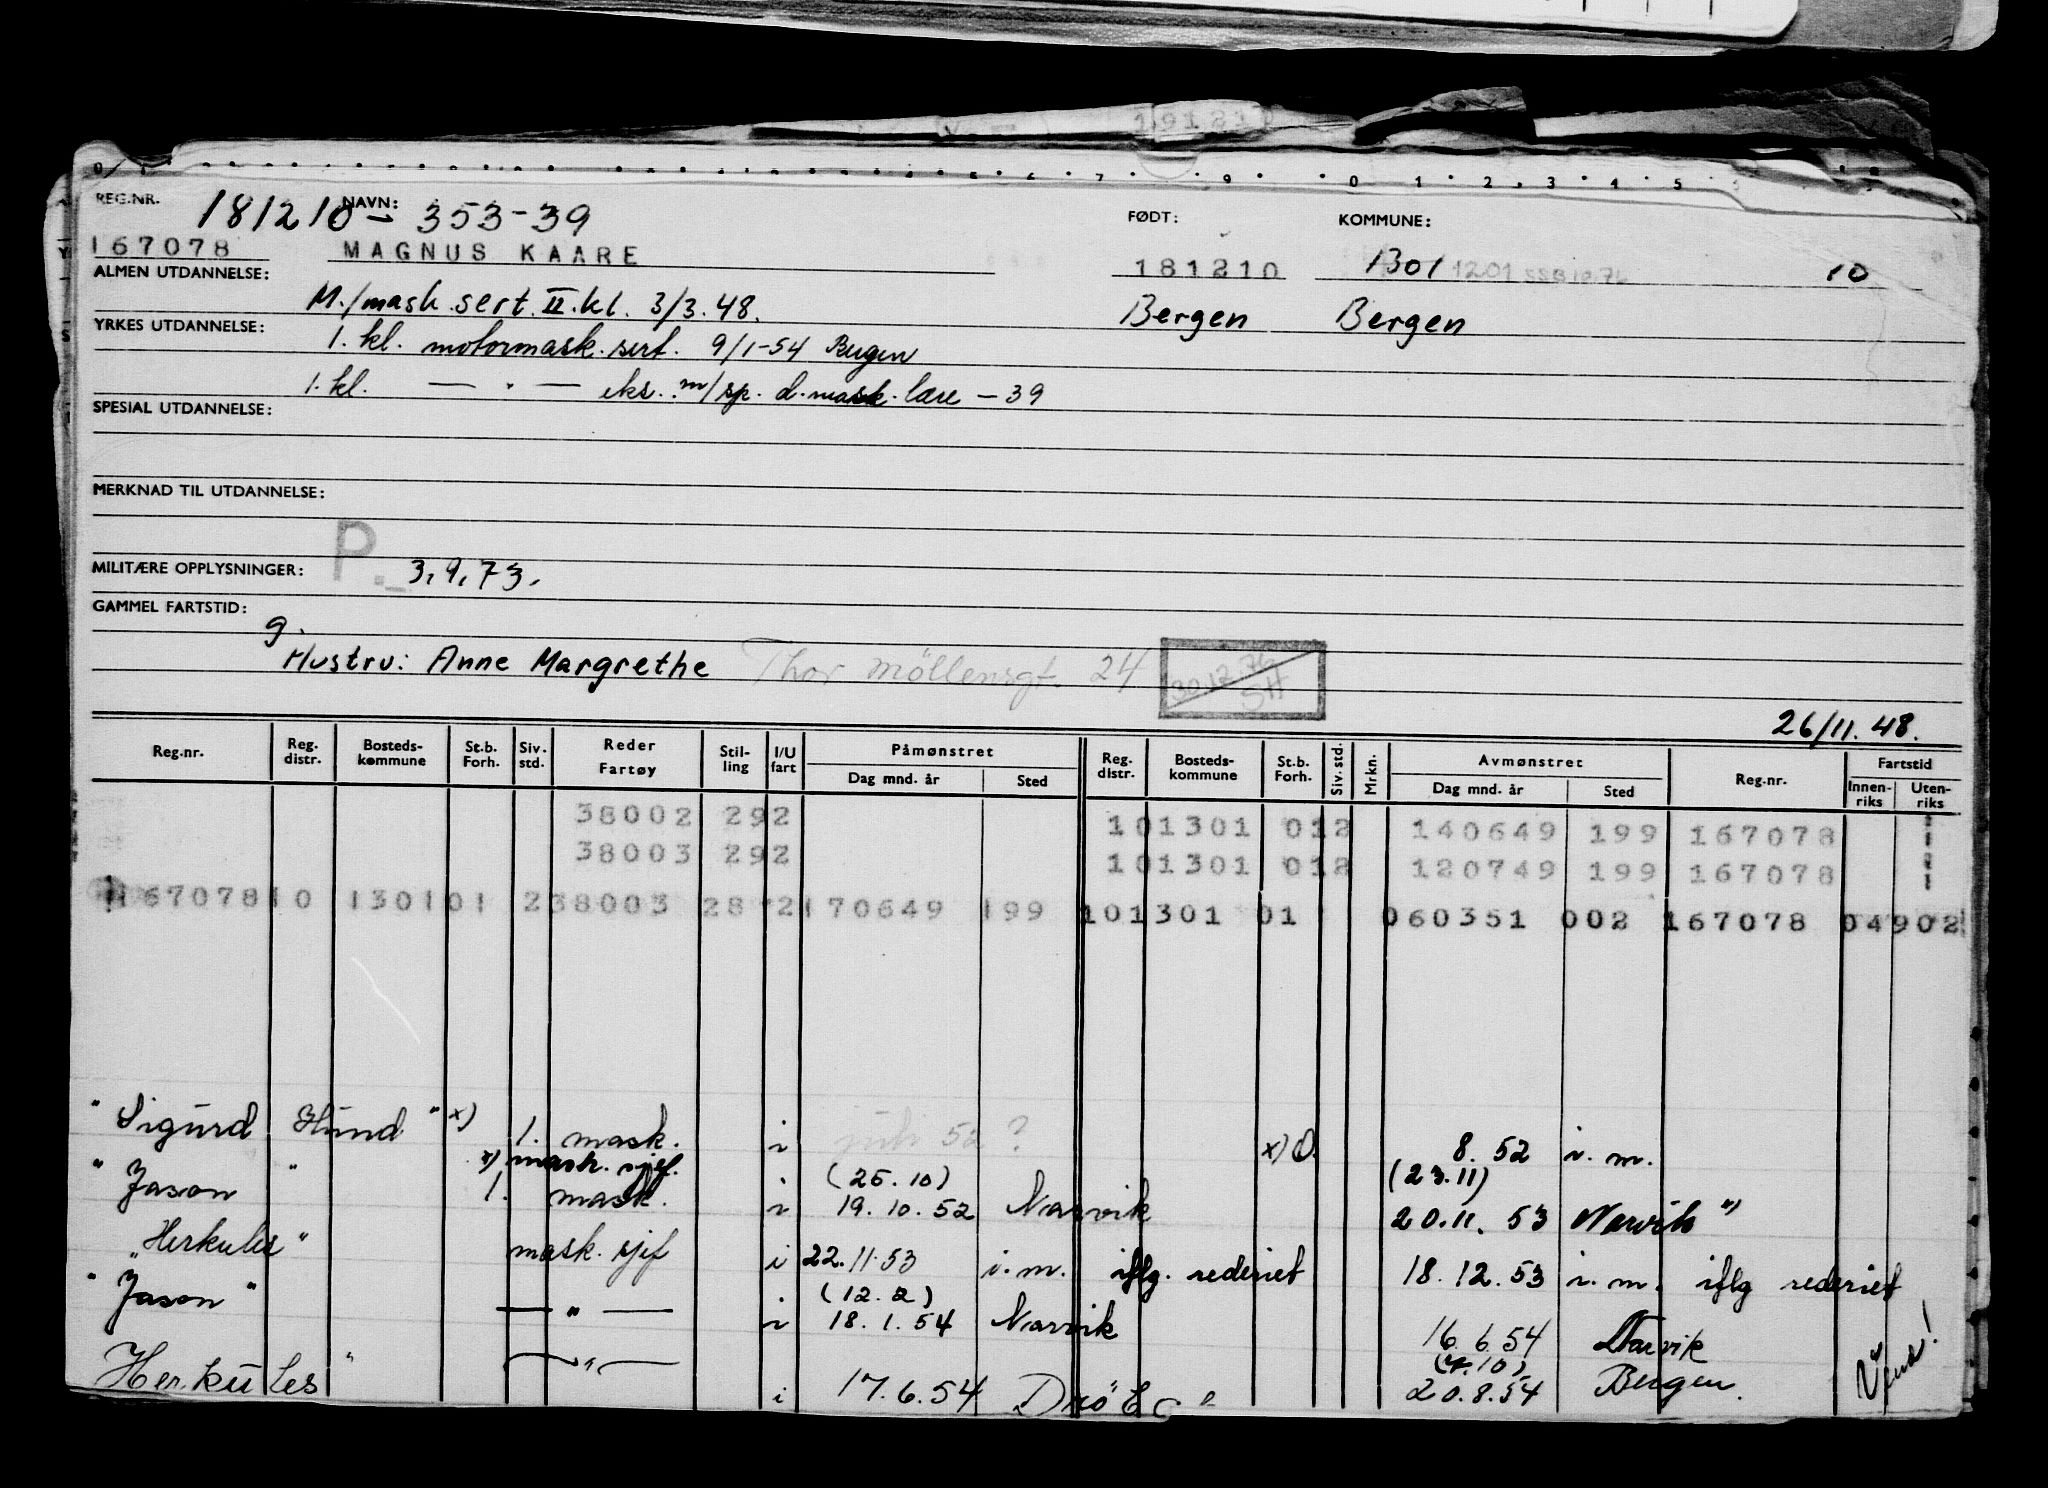 19121
0 1 6 7 9 0 1 2 3 4 5
REG.NR. NAVN: FØDT: KOMMUNE:
181210 - 353-39
167078 MAGNUS KAARE 181210 1301 1201 SSB 10.76 10
ALMEN UTDANNELSE: M./mask.sert. II. kl. 3/3.48. Bergen Bergen
YRKES UTDANNELSE: 1. kl. motormask.sert. 9/1-54 Bergen
1. kl. — " — eks. m/sp. d.mask.lære - 39
SPESIAL UTDANNELSE:
MERKNAD TIL UTDANNELSE:
MILITÆRE OPPLYSNINGER: P. 3.9.73.
GAMMEL FARTSTID:
g.
Hustru: Anne Margrethe Thor Möllensgt. 24 30.12.76 SH
26/11.48.
Reg.nr. Reg. distr. Bosteds-kommune St.b. Forh. Siv. std. Reder Fartøy Stil-ling I/U fart Påmønstret Dag mnd. år Sted Reg. distr. Bosteds-kommune St.b. Forh. Siv. std. Mrkn. Avmønstret Dag mnd. år Sted Reg.nr. Fartstid Innen-riks Uten-riks
38002 292 101301 012 140649 199 167078
38003 292 101301 012 120749 199 167078
16707810 130101 238003 28 2170649 199 101301 01 060351 002 167078 04902
"Sigurd Hund" x) 1. mask. i juli 52 ? x) O. 8. 52 i. m.
x) mask. sjef. (25.10) (23.11)
"Jason" 1. mask. i 19.10.52 Narvik 20.11.53 Narvik x)
"Herkules" mask. sjef i 22.11.53 i.m. iflg. rederiet 18.12.53 i.m. iflg rederiet
"Jason" — " — i (12.2) 18.1.54 Narvik 16.6.54 Narvik
Herkules" — " — i 17.6.54 (4.10) 20.8.54 Bergen. Vend!